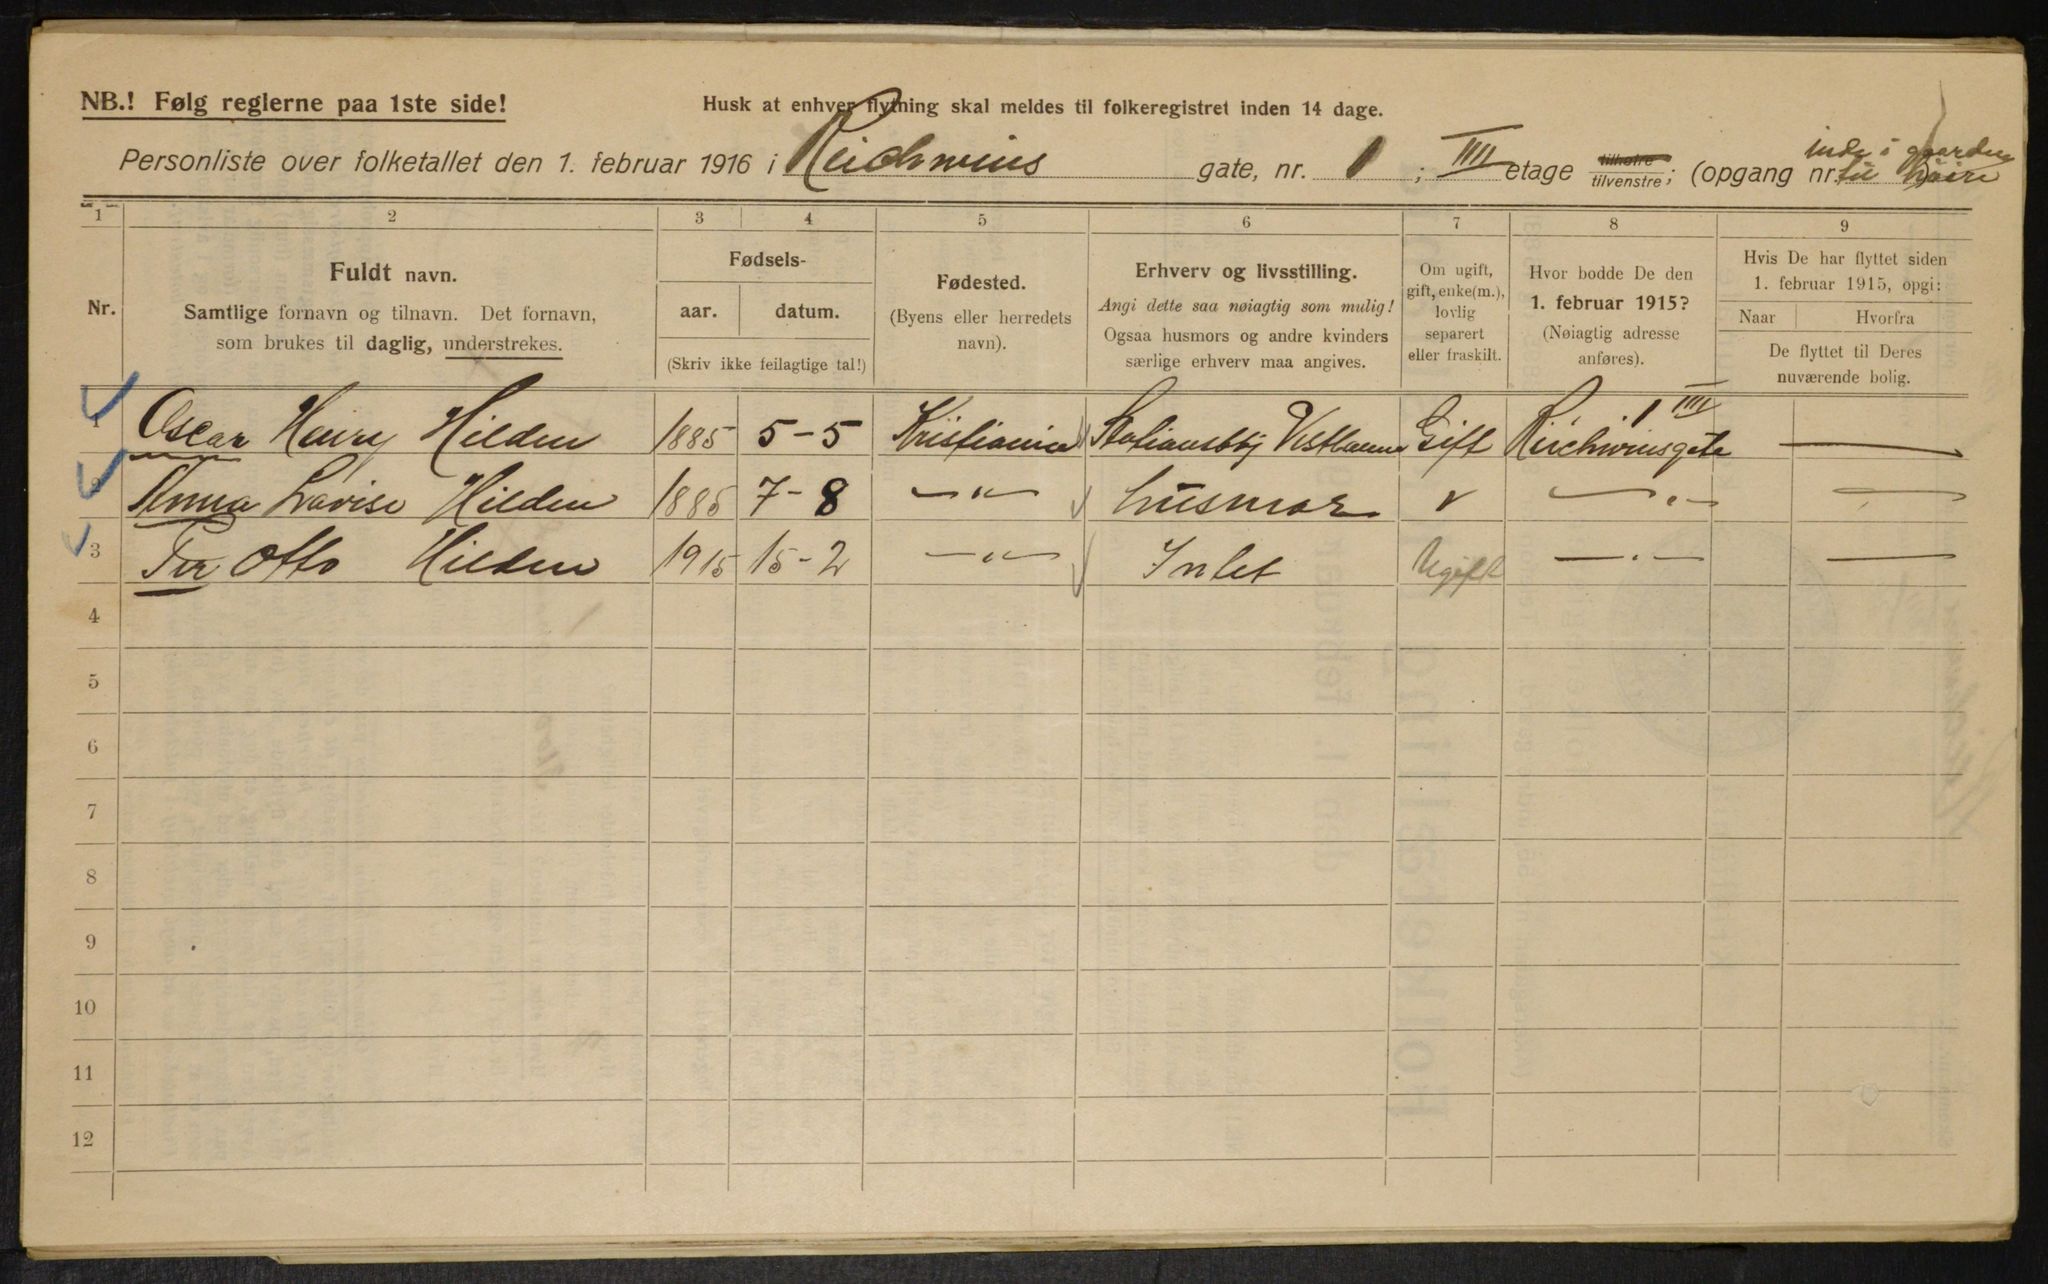 NB.! Følg reglerne paa 1ste side!
Husk at enhver flytning skal meldes til folkeregistret inden 14 dage.
Personliste over folketallet den 1. februar 1916 i Reichwins gate, nr. 1; IIII etage tilhøire tilvenstre; (opgang nr. inde i gaarden til høire
1 2 3 4 5 6 7 8 9
Nr.
Fuldt navn.
Samtlige fornavn og tilnavn. Det fornavn,
som brukes til daglig, understrekes.
Fødsels-
aar. datum.
(Skriv ikke feilagtige tal!)
Fødested.
(Byens eller herredets
navn).
Erhverv og livsstilling.
Angi dette saa nøiagtig som mulig!
Ogsaa husmors og andre kvinders
særlige erhverv maa angives.
Om ugift,
gift, enke(m.),
lovlig
separert
eller fraskilt.
Hvor bodde De den
1. februar 1915?
(Nøiagtig adresse
anføres).
Hvis De har flyttet siden
1. februar 1915, opgi:
Naar Hvorfra
De flyttet til Deres
nuværende bolig.
1 Oscar Henry Hilden 1885 5-5 Kristiania Gift 1 IIII —
2 Anna Lovise Hilden 1885 7-8 —"— husmor —"— —
3 Per Otto Hilden 1915 15-2 —"— Intet Ugift —"— —
4
5
6
7
8
9
10
11
12